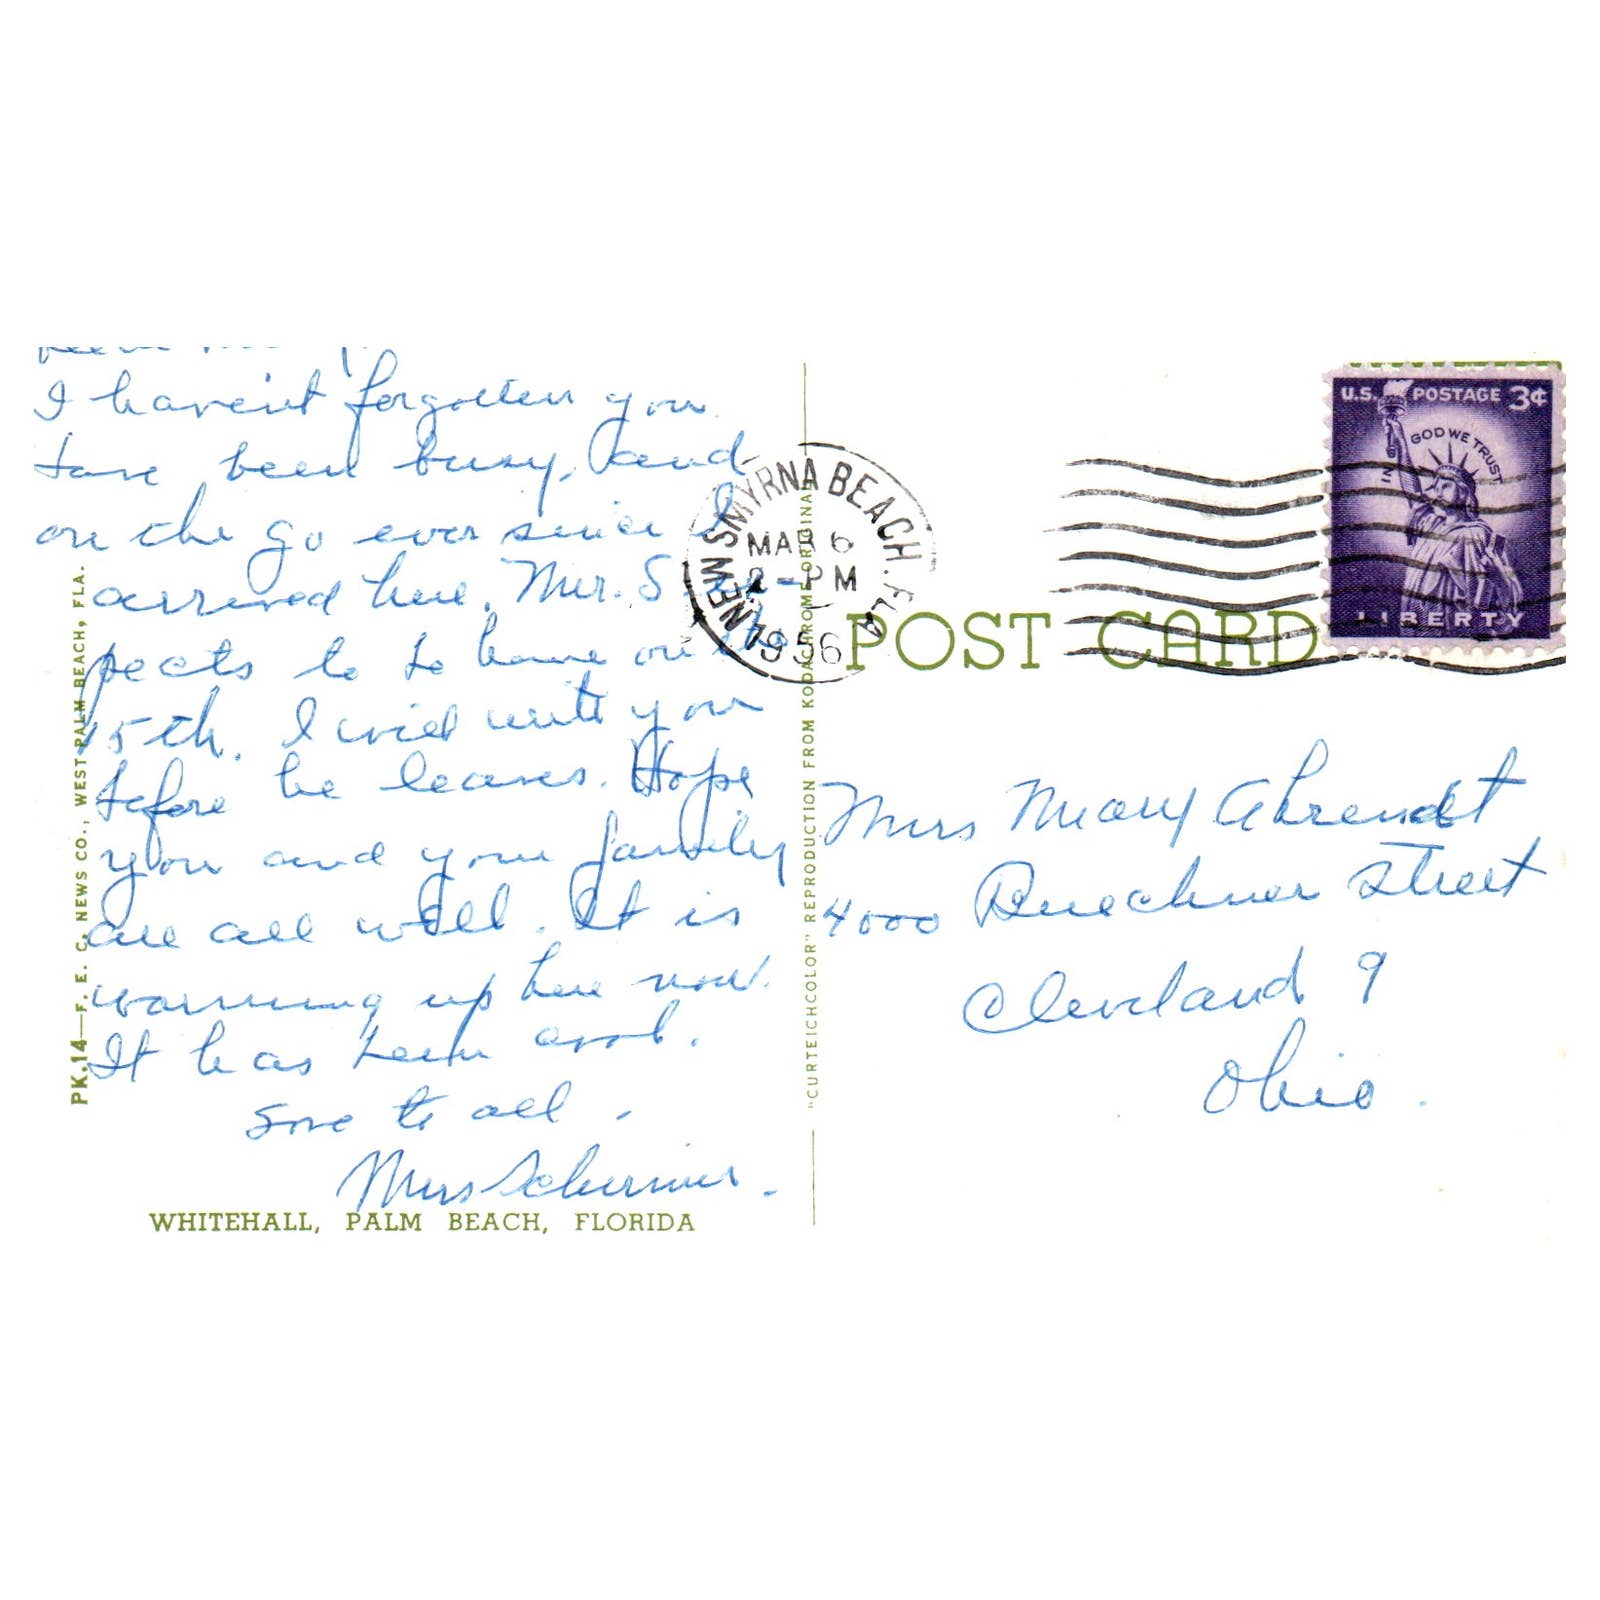 I haven't forgotten you.
Have been busy, and
on the go ever since I
arrived here. Mr. S. ex-
pects to be home on the
15th. I will write you
before he leaves. Hope
you and your family
are all well. It is
warming up here now.
It has been cool.
Love to all.
Mrs
WHITEHALL, PALM BEACH, FLORIDA
PK.14—F. E. C. NEWS CO., WEST PALM BEACH, FLA.
"CURTEICHCOLOR" REPRODUCTION FROM KODACHROME ORIGINAL
NEW SMYRNA BEACH. FLA
MAR 6
2 - PM
1956
U.S. POSTAGE 3¢
IN GOD WE TRUST
LIBERTY
POST CARD
Mrs Mary Ahrendt
4000 Buechner Street
Cleveland 9
Ohio.